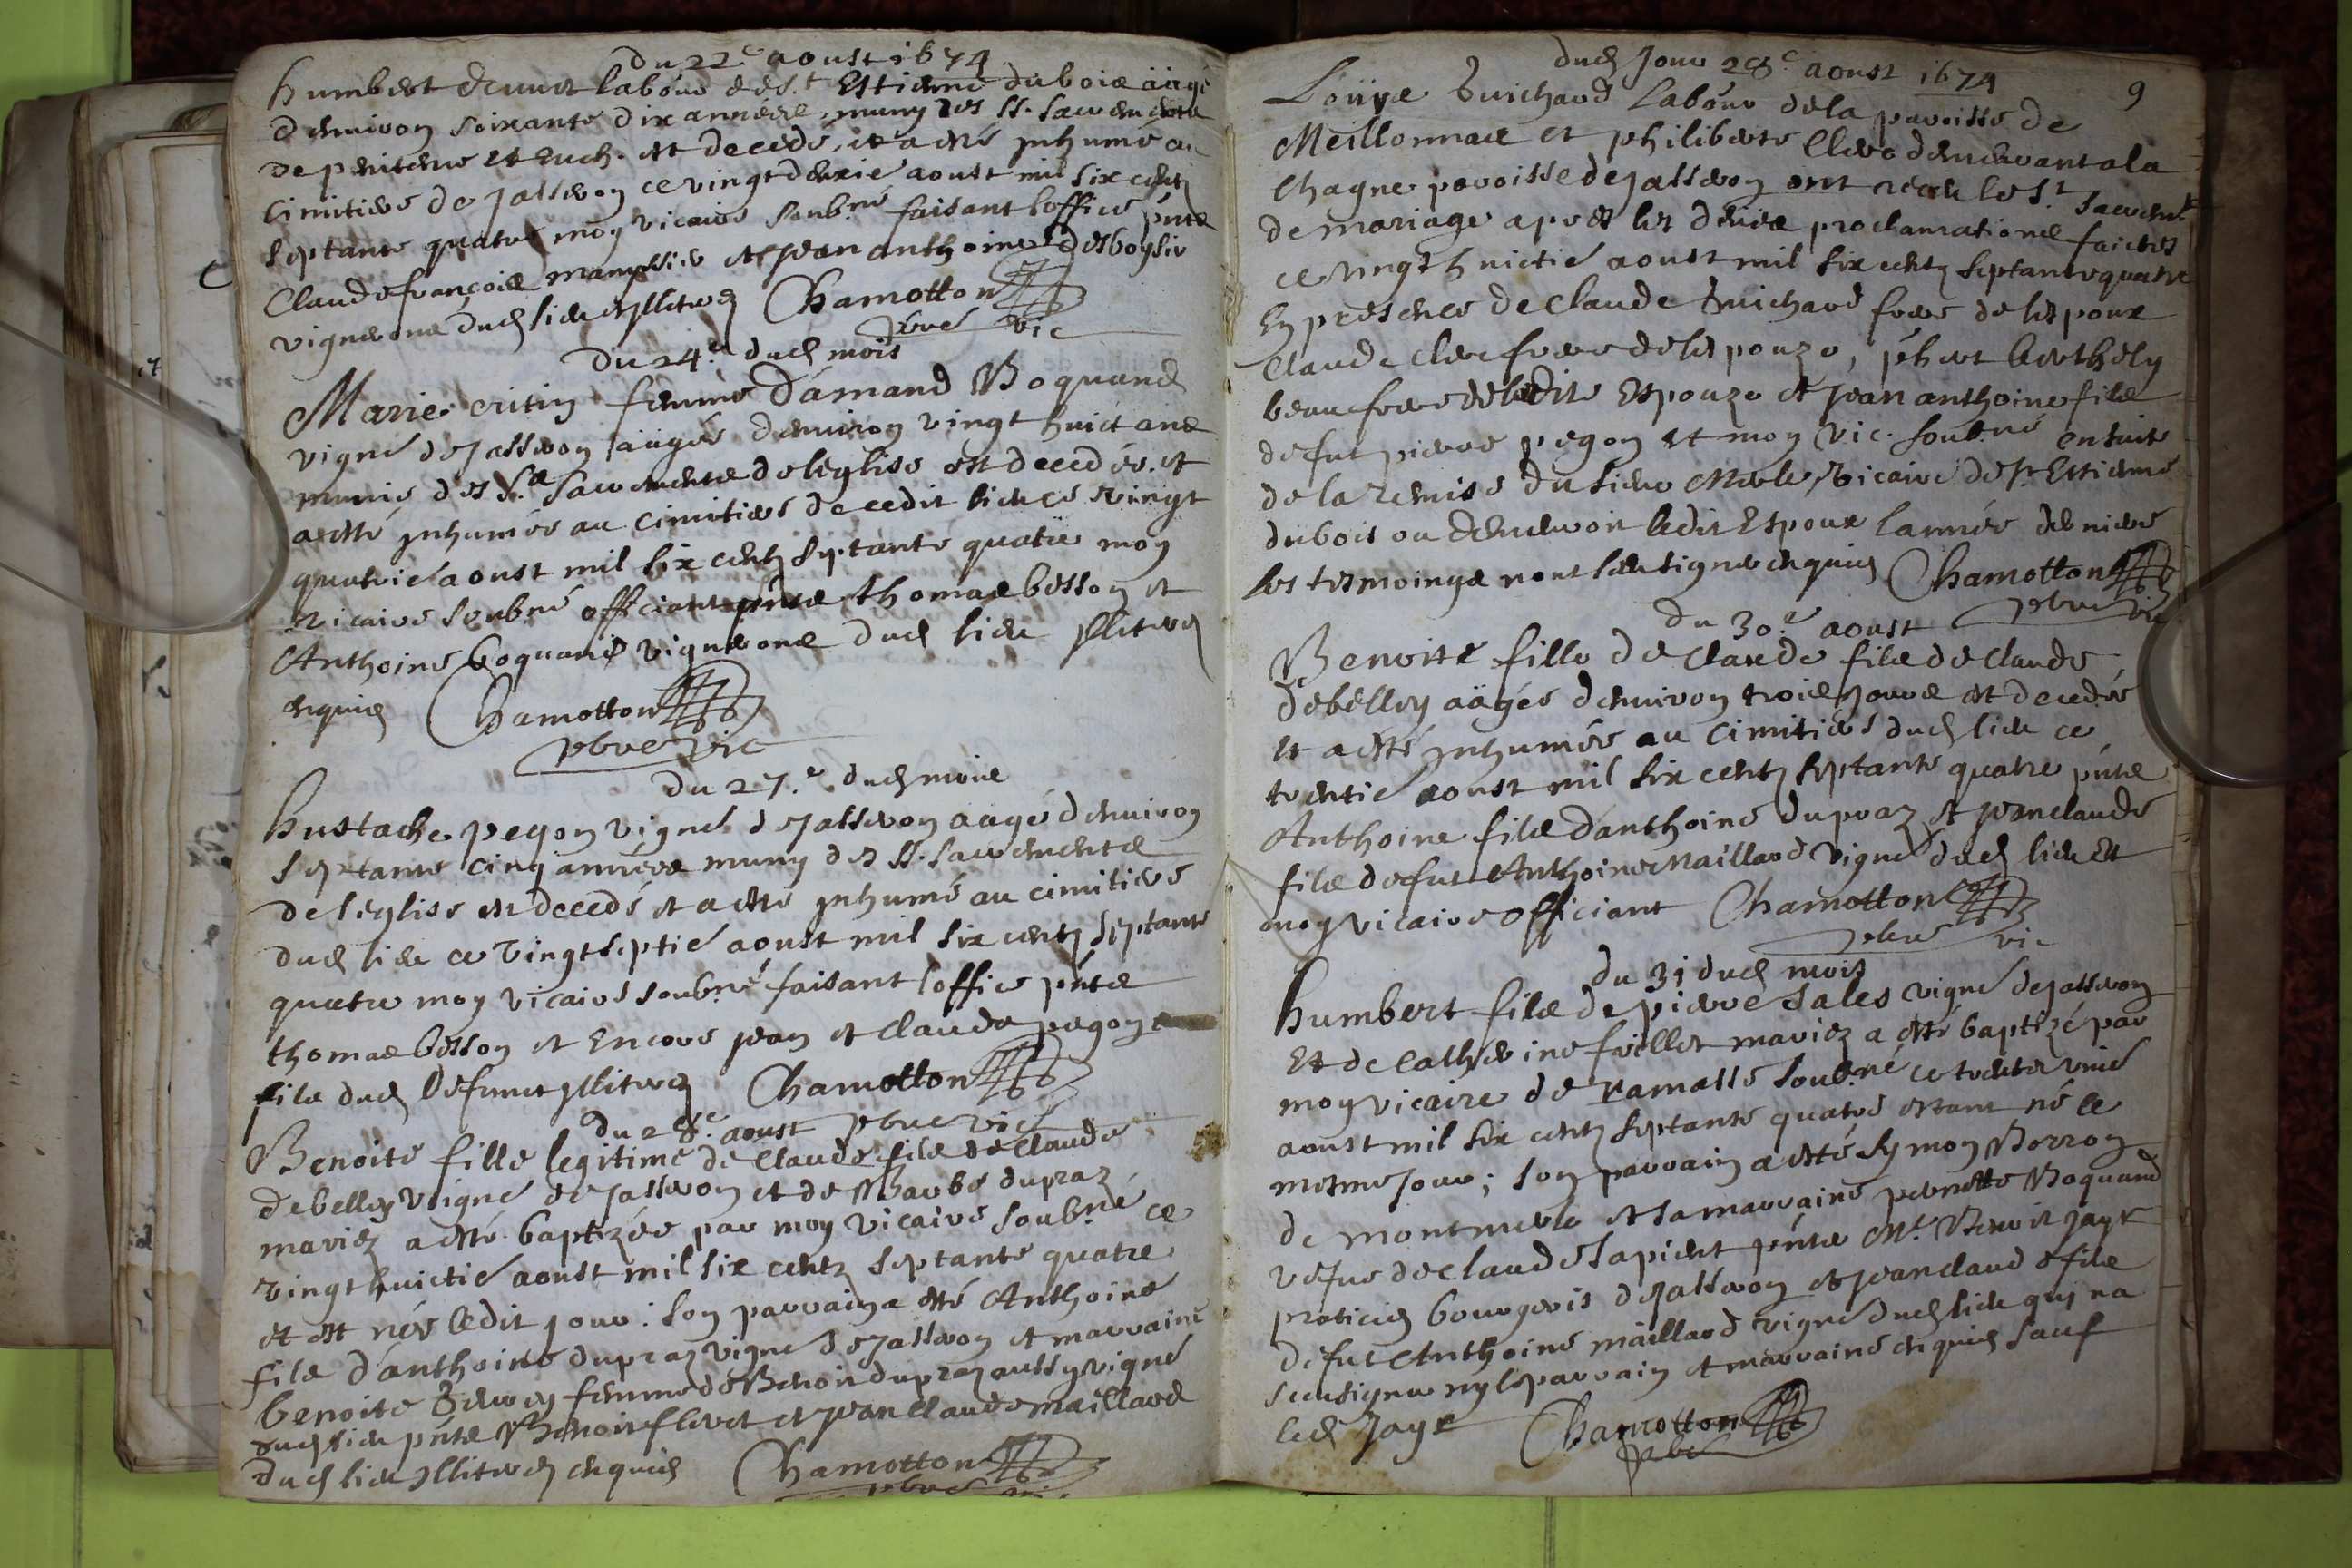 Du 22.e aoust 1674
humbert laboúr de St Estienne du bois aagé
denviron soixante dix années, muny des SS. sacrements
de penitence et Euch. est decedé, et a esté inhumé au
cimitiere de Jasseron ce vingtdeuxié aoust mil six centz
septante quatre moy vicaire soubné faisant loffice pnts
Claude françois et Jean anthoine
vignerons dud lieu illiterez Chamotton
pbre vic
Du 24.e dud mois
Marie critin femme d'amand Boquand
vigné de Jasseron aagée denviron vingt huict ans
munie des Ss sacrements de leglise est decedée. et
a esté inhumée au cimitiere de cedit lieu ce vingt
quatrié aoust mil six centz septante quatre moy
vicaire soubné officiant pnts thomas besson et
Anthoine boquand vignerons dud lieu illiterez
enquis Chamotton
pbre vic
Du 27.e dud mois
hustache pegon vigné de Jasseron aagé denviron
septante cinq années muny des SS. sacrements
de leglise est decedé et a esté inhumé au cimitiere
dud lieu ce vingtseptié aoust mil six centz septante
quatre moy vicaire soubné faisant loffice pnts
thomas besson et Encore jean et claude pegon
fils dud defunct illiterez Chamotton
du 28.e aoust pbre vic
Benoite fille legitime de Claude fils de Claude
debelley vigné de Jasseron et de Barbe dupraz
mariez a esté baptizée par moy vicaire soubné ce
vingthuictié aoust mil six centz septante quatre
et est née ledit jour: son parrain a esté Anthoine
fils d'anthoine dupraz vigné de Jasseron et marraine
benoite femme de Benoit dupraz aussy vigné
dud lieu pnts Benoit flevet et jean claude maillard
dud lieu illiterez enquis Chamotton
pbre vic
9
dud Jour 28.e aoust 1674
Loüys Guichard laboúr de la paroisse de
Meillonnas et philiberte Clerc demeurant a la
Chagne paroisse de Jasseron ont receu le St sacremt
de mariage apres les deües proclamations faictes
ce vingt huictié aoust mil six centz septante quatre
En presence de claude Guichard frere de lespoux
Claude clerc frere de lespouze, phert berthely
beaufrere de ladite Espouze et Jean anthoine fils
de fut pierre pegon et moy vic. soubné ensuite
de la remise du sieur Merle, vicaire de St Estienne
dubois ou demeuroit ledit Espoux lannée derniere
les tesmoings n'ont sceu signer enquis Chamotton
pbre vic
du 30.e aoust
Benoite fille de Claude fils de claude
debelley aagée denviron trois jours est decedée
et a esté inhumée au cimitiere dud lieu ce
trentié aoust mil six centz septante quatre pnts
Anthoine fils d'anthoine dupraz et jean claude
fils de fut Anthoine Maillard vigné dud lieu Et
moy vicaire officiant Chamotton
pbre vic
du 31 dud mois
humbert fils de pierre Sales vigné de Jasseron
Et de catherine mariez a esté baptizé par
moy vicaire de ramasse soubné ce trente unié
aoust mil six centz septante quatre estant né le
mesme jour; son parrain a esté symon Borron
de montmerle et sa marraine pernette Boquand
vefue de claude sapient pnts Mr. Benoit Jayr
praticien bourgeois de Jasseron et jean claude fils
de fut Anthoine maillard vigné dud lieu qui na
sceu signer ny le parrain et marraine enquis sauf
led Jayr Chamotton
pbre